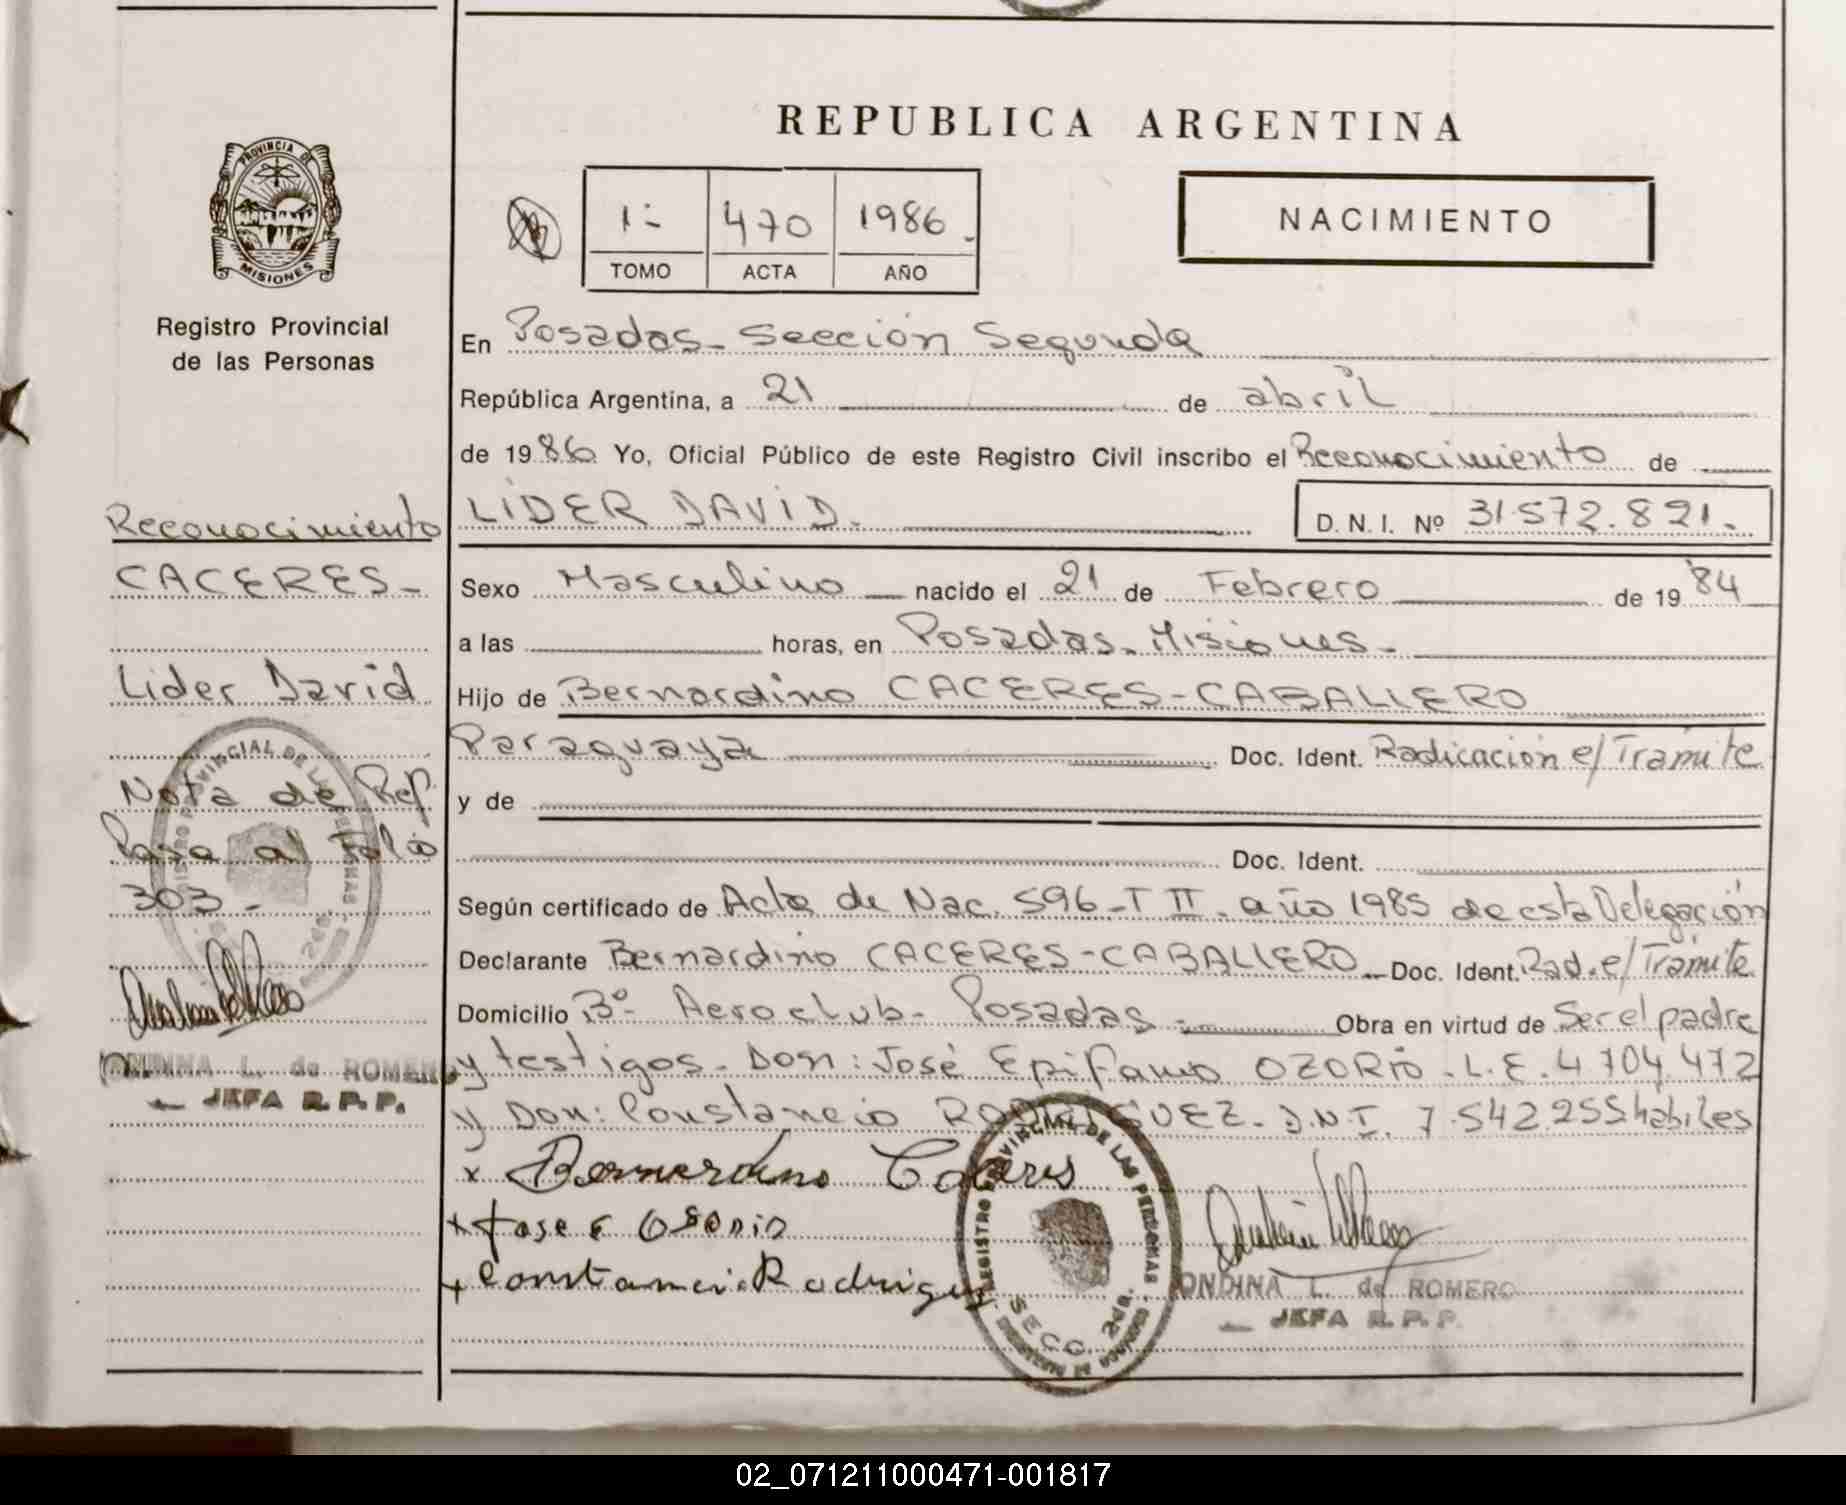 REPUBLICA ARGENTINA
PROVINCIA DE
MISIONES
Registro Provincial
de las Personas
1- 470 1986.
TOMO ACTA AÑO
NACIMIENTO
En Posadas - Sección Segunda
República Argentina, a 21 de abril
de 1986 Yo, Oficial Público de este Registro Civil inscribo el Reconocimiento de
LIDER DAVID. D. N. I. Nº 31.572.821.
Sexo Masculino nacido el 21 de Febrero de 1984
a las horas, en Posadas - Misiones -
Hijo de Bernardino CACERES-CABALLERO
Paraguaya Doc. Ident. Radicación e/Trámite
y de
Doc. Ident.
Según certificado de Acta de Nac. 596 - T II - año 1985 de esta Delegación
Declarante Bernardino CACERES-CABALLERO Doc. Ident. Rad. e/Trámite
Domicilio Bº Aeroclub - Posadas - Obra en virtud de Ser el padre
y testigos - Don: José Epifanio OZORIO - L.E. 4.704.472
y Don: Constancio RODRIGUEZ - D.N.I. 7.542.255 hábiles
x Bernerdino Caceres
x Jose E Osorio
x Constancio Rodriguez
REGISTRO PROVINCIAL DE LAS PERSONAS
SECC. 2da.
ONDINA L. de ROMERO
JEFA R.P.P.
Reconocimiento
CACERES -
Lider David
Nota de Ref.
Pasa al Folio
303 -
ONDINA L. de ROMERO
JEFA R.P.P.
02_071211000471-001817